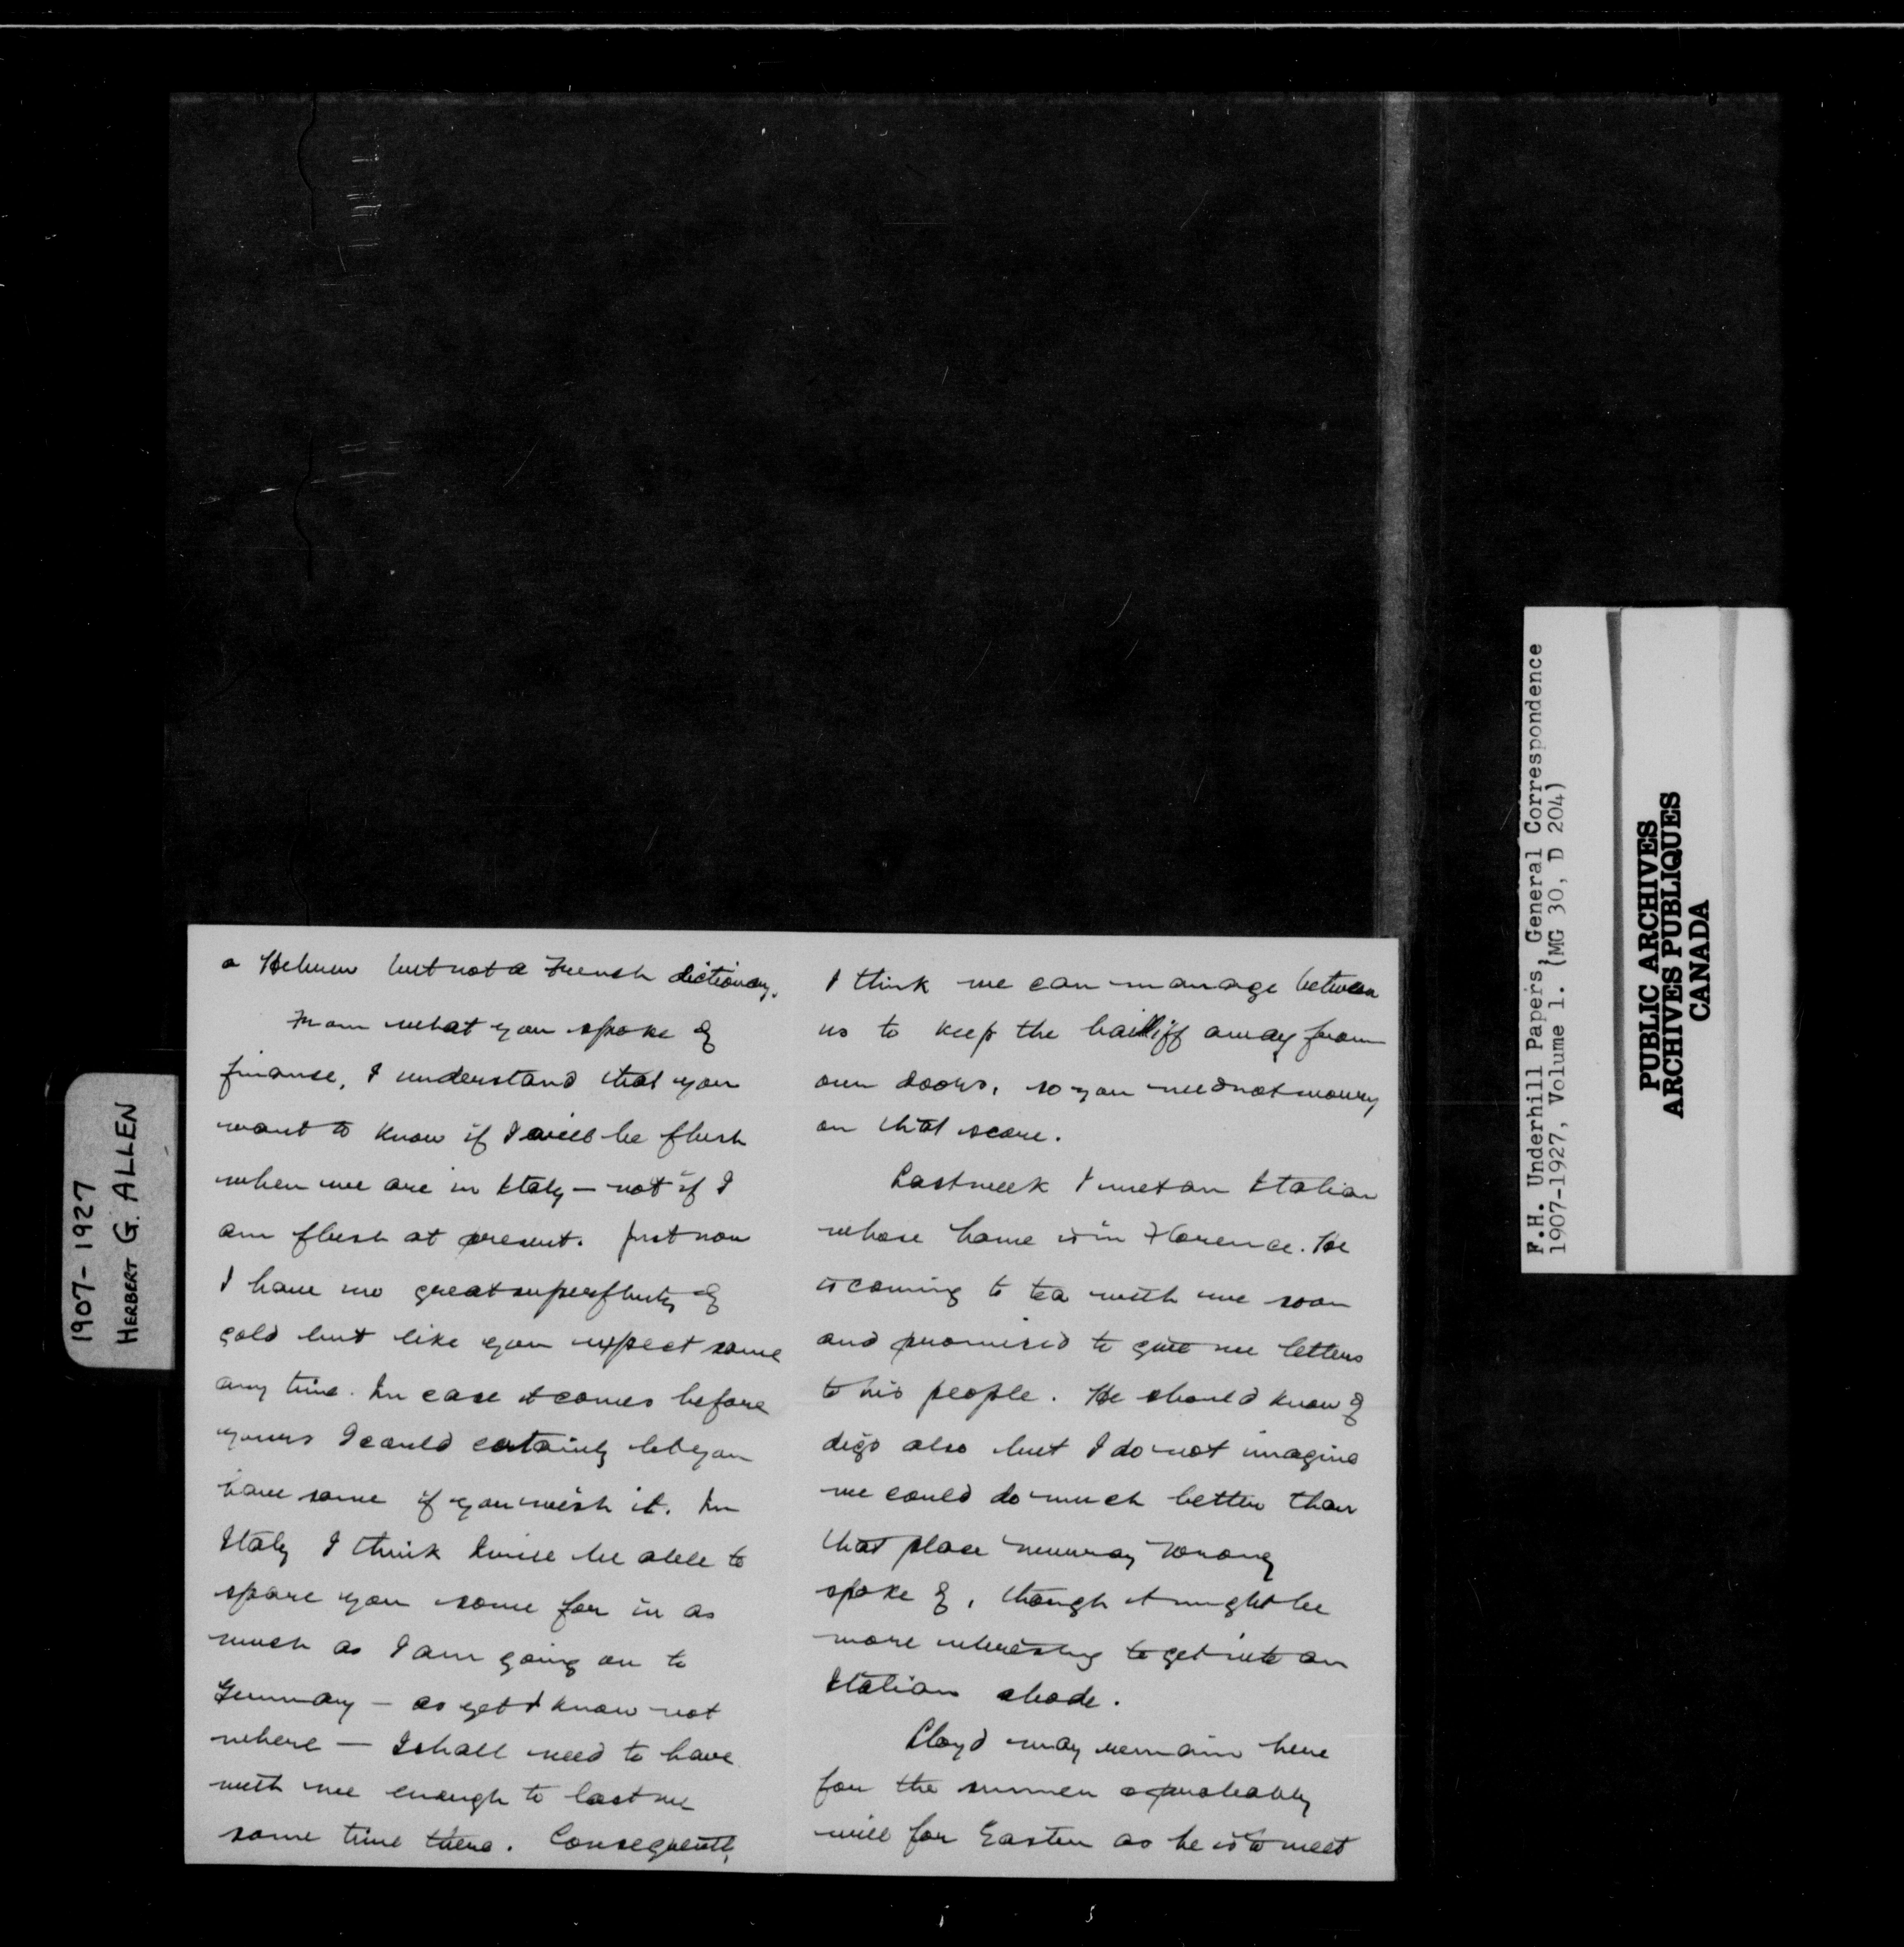 1907-1927
HERBERT G. ALLEN
a Hebrew but not a French dictionary.
From what you spoke of
finance, I understand that you
want to know if I will be flush
when we are in Italy — not if I
am flush at present. Just now
I have no great superfluity of
gold but like you expect some
any time. In case it comes before
yours I could certainly let you
have some if you wish it. In
Italy I think I will be able to
spare you some for in as
much as I am going on to
Germany — as yet I know not
where — I shall need to have
with me enough to last me
some time there. Consequently
I think we can manage between
us to keep the bailiff away from
our doors, so you need not worry
on that score.
Last week I met an Italian
whose home is in Florence. He
is coming to tea with me soon
and promised to give me letters
to his people. He should know of
digs also but I do not imagine
we could do much better than
that place Murray Wrong
spoke of, though it might be
more interesting to get into an
Italian abode.
Lloyd may remain here
for the summer & probably
will for Easter as he is to meet
F.H. Underhill Papers, General Correspondence
1907-1927, Volume 1. (MG 30, D 204)
PUBLIC ARCHIVES
ARCHIVES PUBLIQUES
CANADA